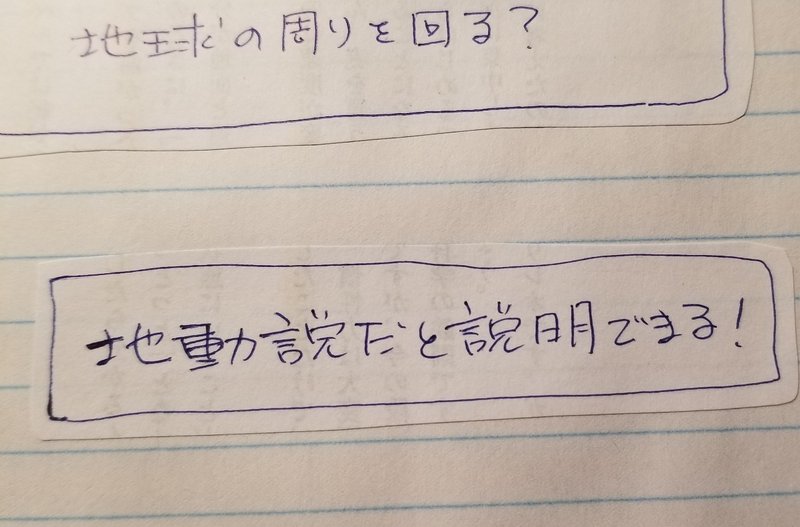 地球の周りを回る?
地動説だと説明できる!